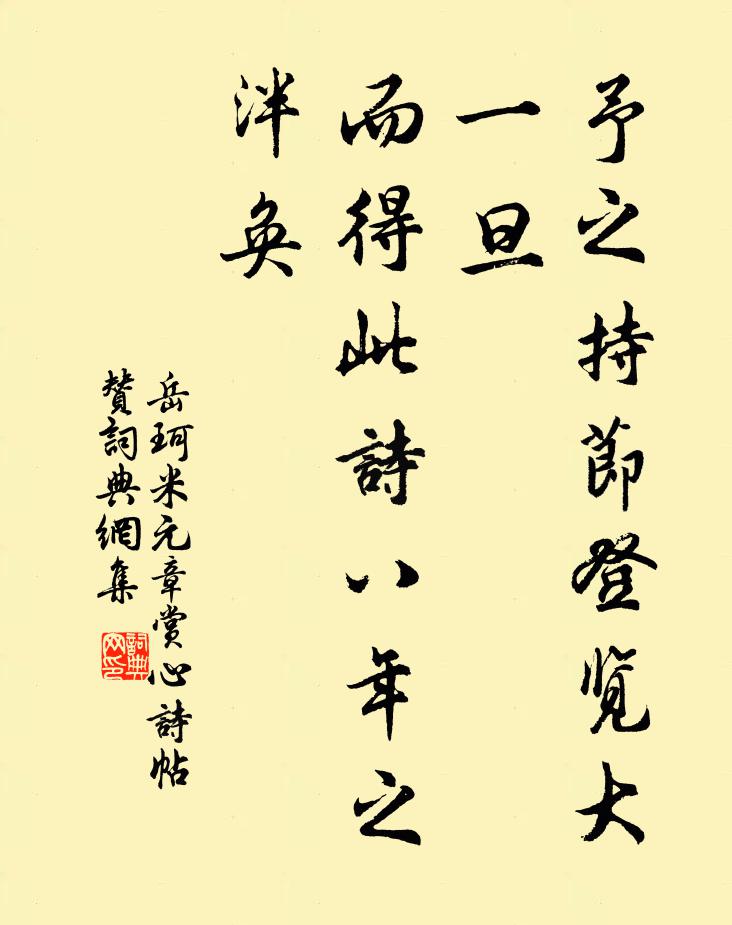 予之持節登覽大
一旦
而得此詩八年之
泮奐
岳珂米元章賞心詩帖
賛詞典網集
詞典網印